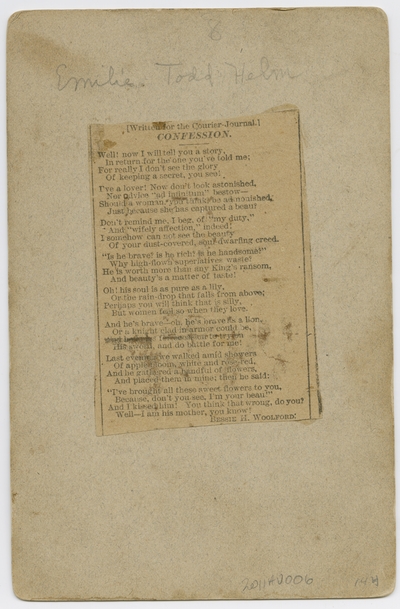 6
Emilie Todd Helm
[Written for the Courier-Journal.]
CONFESSION.
Well! now I will tell you a story,
In return for the one you've told me;
For really I don't see the glory
Of keeping a secret, you see!
I've a lover! Now don't look astonished,
Nor advice "ad infinitum" bestow—
Should a woman, you think, be admonished,
Just because she has captured a beau?
Don't remind me, I beg, of "my duty,"
And "wifely affection," indeed!
I somehow can not see the beauty
Of your dust-covered, soul-dwarfing creed.
"Is he brave? is he rich? is he handsome?"
Why high-flown superlatives waste!
He is worth more than any King's ransom,
And beauty's a matter of taste!
Oh! his soul is as pure as a lily,
Or the rain-drop that falls from above;
Perhaps you will think that is silly,
But women feel so when they love.
And he's brave—oh, he's brave as a lion,
Or a knight clad in armor could be,
His sword, and do battle for me!
Last evening we walked amid showers
Of apple-bloom, white and rose-red,
And he gathered a handful of flowers,
And placed them in mine; then he said:
"I've brought all these sweet flowers to you,
Because, don't you see, I'm your beau!"
And I kissed him! You think that wrong, do you?
Well—I am his mother, you know!
BESSIE H. WOOLFORD.
2011AV006